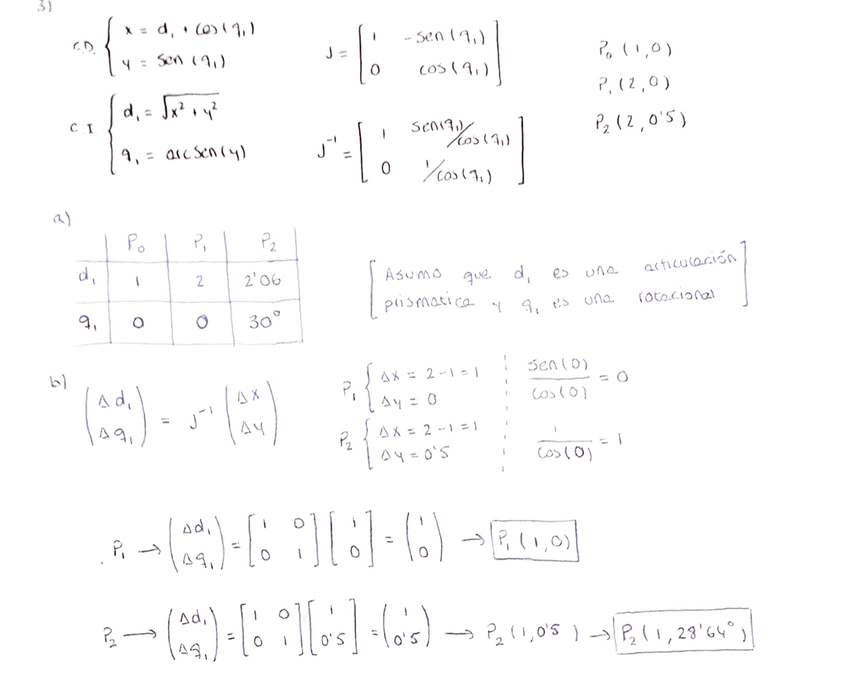 3)
C.D. { x = d₁ + cos(q₁)
y = sen(q₁)
J = [ 1 -sen(q₁)
0 cos(q₁) ]
P₀ (1,0)
P₁ (2,0)
P₂ (2,0'5)
C I { d₁ = √(x² + y²)
q₁ = arcsen(y)
J⁻¹ = [ 1 sen(q₁)/cos(q₁)
0 1/cos(q₁) ]
a)
P₀ P₁ P₂
d₁ 1 2 2'06
q₁ 0 0 30°
[Asumo que d₁ es una articulación
prismatica y q₁ es una rotacional]
b)
(Δd₁
Δq₁) = J⁻¹ (Δx
Δy)
P₁ { Δx = 2-1=1
Δy = 0
P₂ { Δx = 2-1=1
Δy = 0'5
sen(0)/cos(0) = 0
1/cos(0) = 1
P₁ → (Δd₁
Δq₁) = [1 0
0 1] [1
0] = (1
0) → P₁ (1,0)
P₂ → (Δd₁
Δq₁) = [1 0
0 1] [1
0'5] = (1
0'5) → P₂ (1,0'5) → P₂ (1,28'64°)